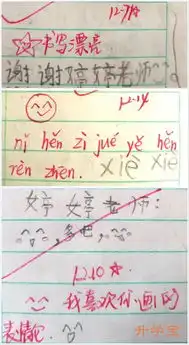 12-7/14
书写漂亮
谢谢婷婷老师
12-14
nǐ hěn zì jué yě hěn
rèn zhēn. xiè xiè
婷婷老师：
多吧，
12.10☆
我喜欢你画的
表情包.
升学宝